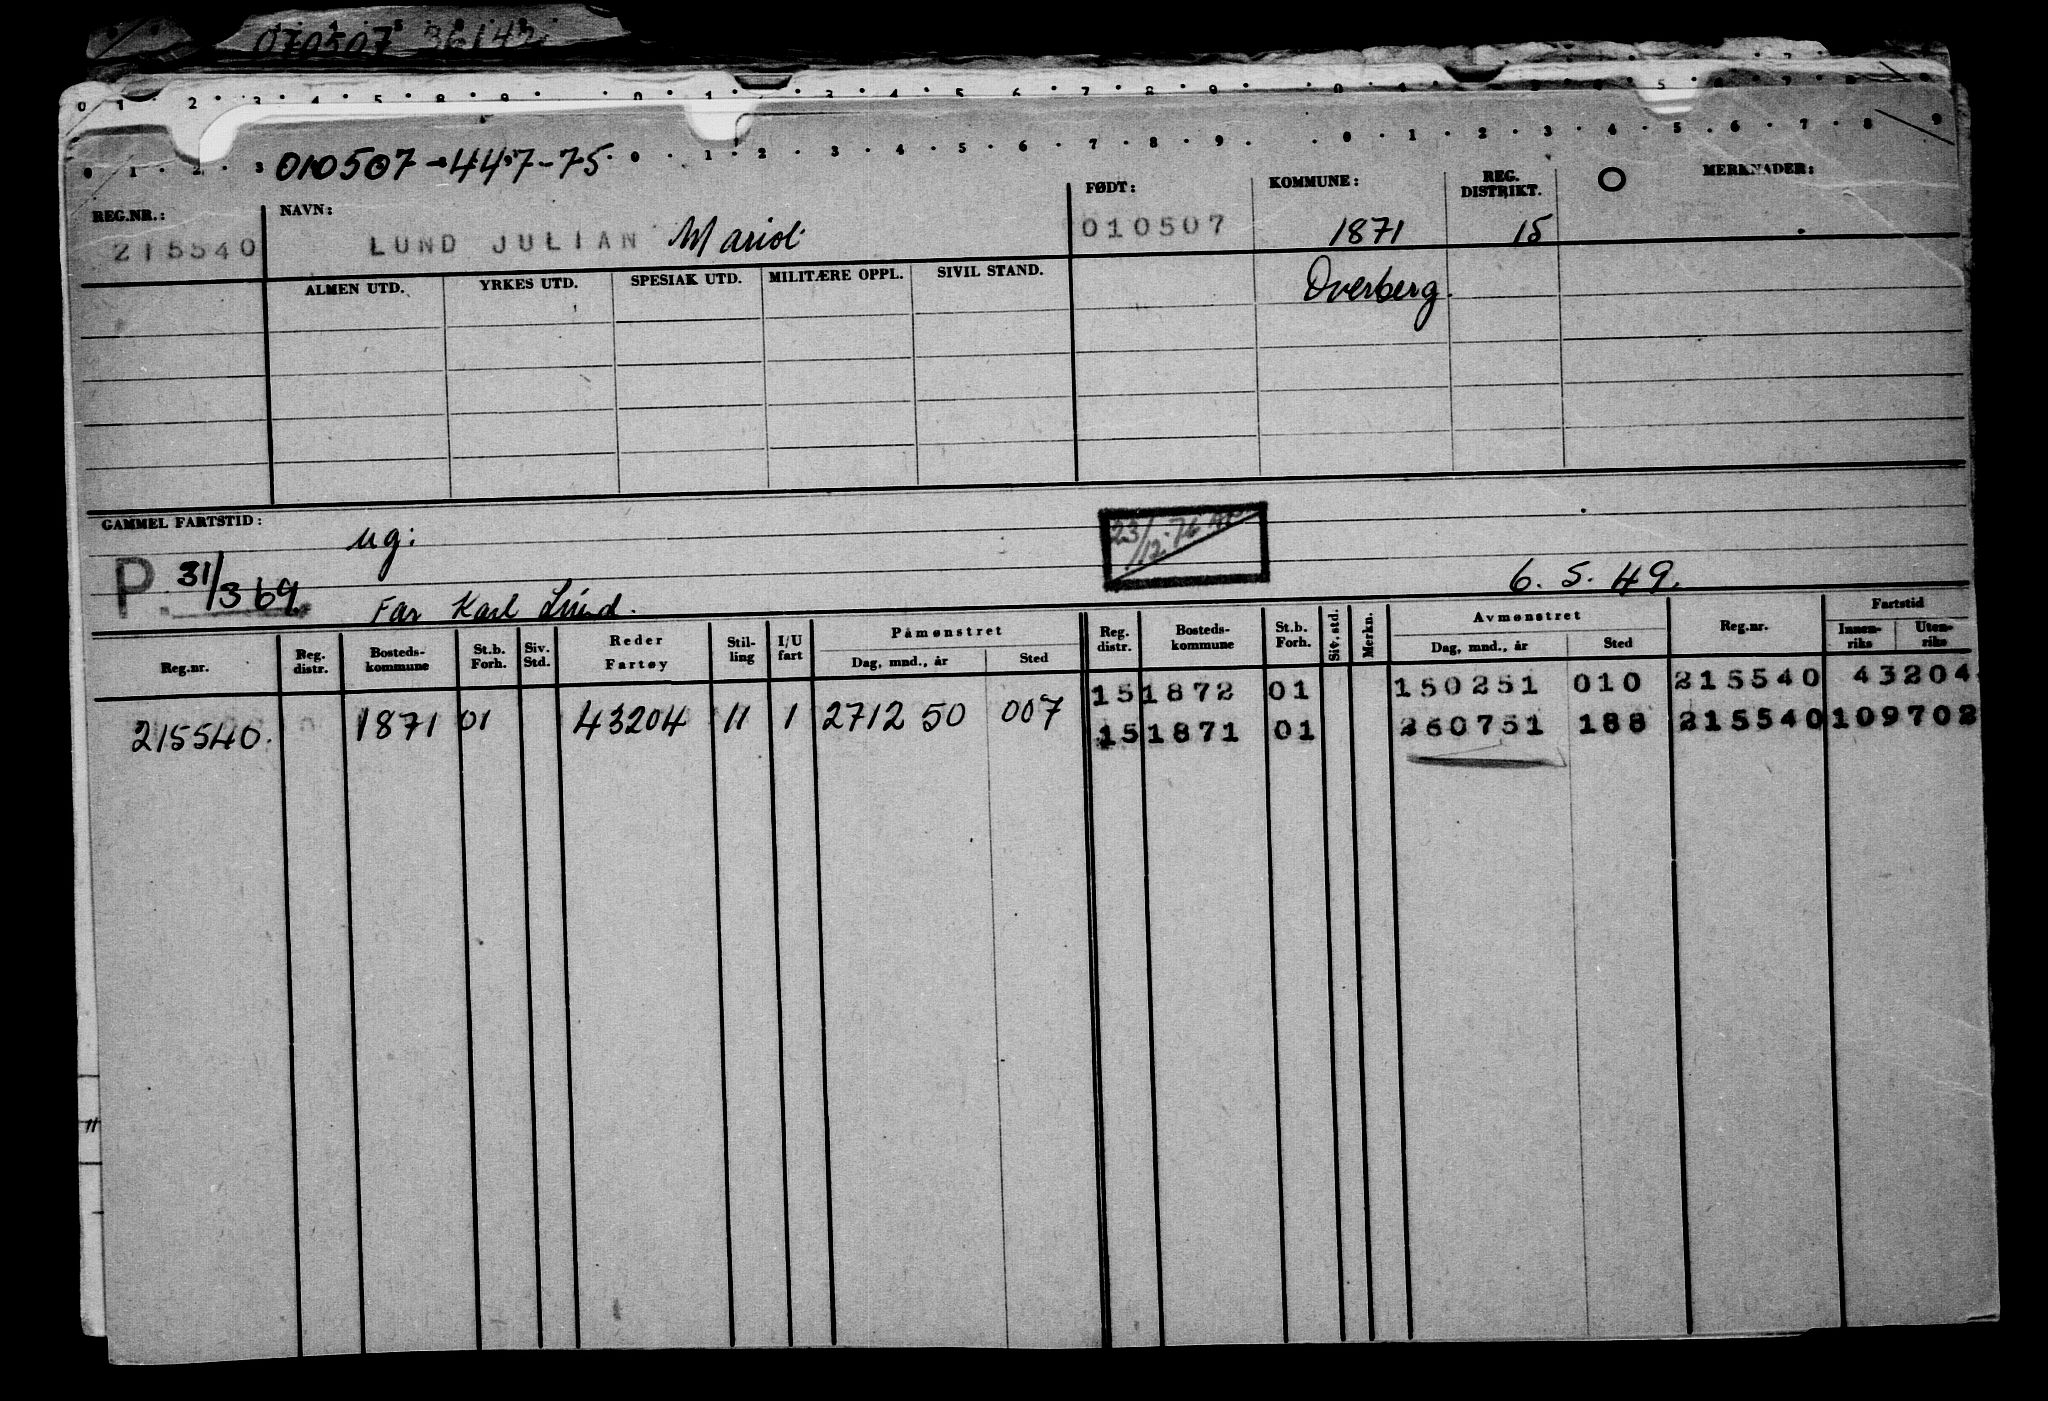 070507 36142
0 1 2 3 4 5 8 9 0 1 2 3 4 5 6 7 8 9 0 1 5 6 7 8 9
0 1 2 3 010507-447-75 0 1 2 3 4 5 6 7 8 9 0 1 2 3 4 5 6 7 8 9
REG.NR.: NAVN: FØDT: KOMMUNE: REG. DISTRIKT. O MERKNADER:
215540 LUND JULIAN 010507 1871 15
ALMEN UTD. YRKES UTD. SPESIAK UTD. MILITÆRE OPPL. SIVIL STAND. Overberg.
GAMMEL FARTSTID: ug: 23/12.76
P. 31/369 6.5.49.
Far Karl Lund.
Reg.nr. Reg. distr. Bosteds-kommune St.b. Forh. Siv. Std. Reder Fartøy Stil-ling I/U fart Påmønstret Dag, mnd., år Sted Reg. distr. Bosteds-kommune St.b. Forh. Siv. std. Merkn. Avmønstret Dag, mnd., år Sted Reg.nr. Fartstid Innen-riks Uten-riks
15 1872 01 150251 010 215540 43204
215540. 1871 01 43204 11 1 271250 007 15 1871 01 260751 188 215540 109702
11